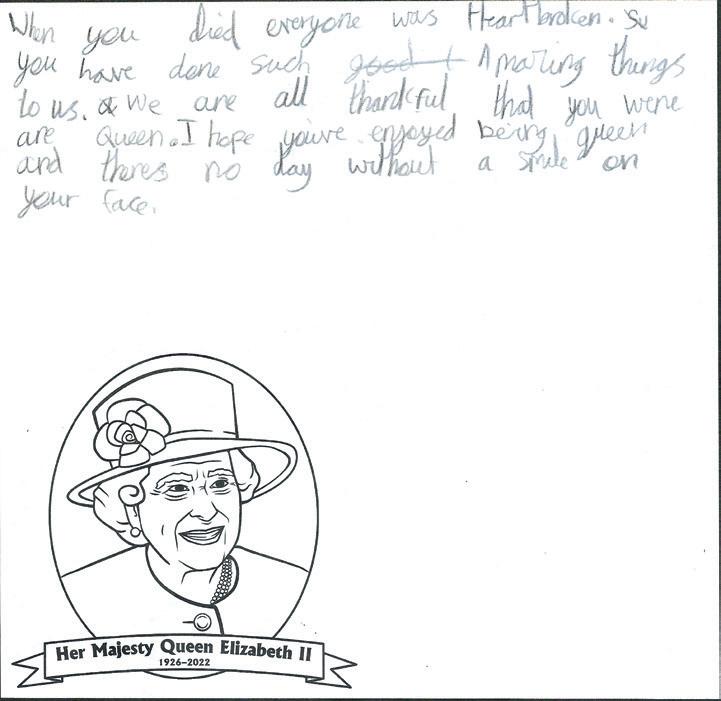 When you died everyone was Heartbroken. Su
you have done such good t Amazing things
to us. & We are all thankful that you were
are Queen. I hope you've enjoyed being queen
and theres no day without a smile on
your face.
Her Majesty Queen Elizabeth II
1926–2022